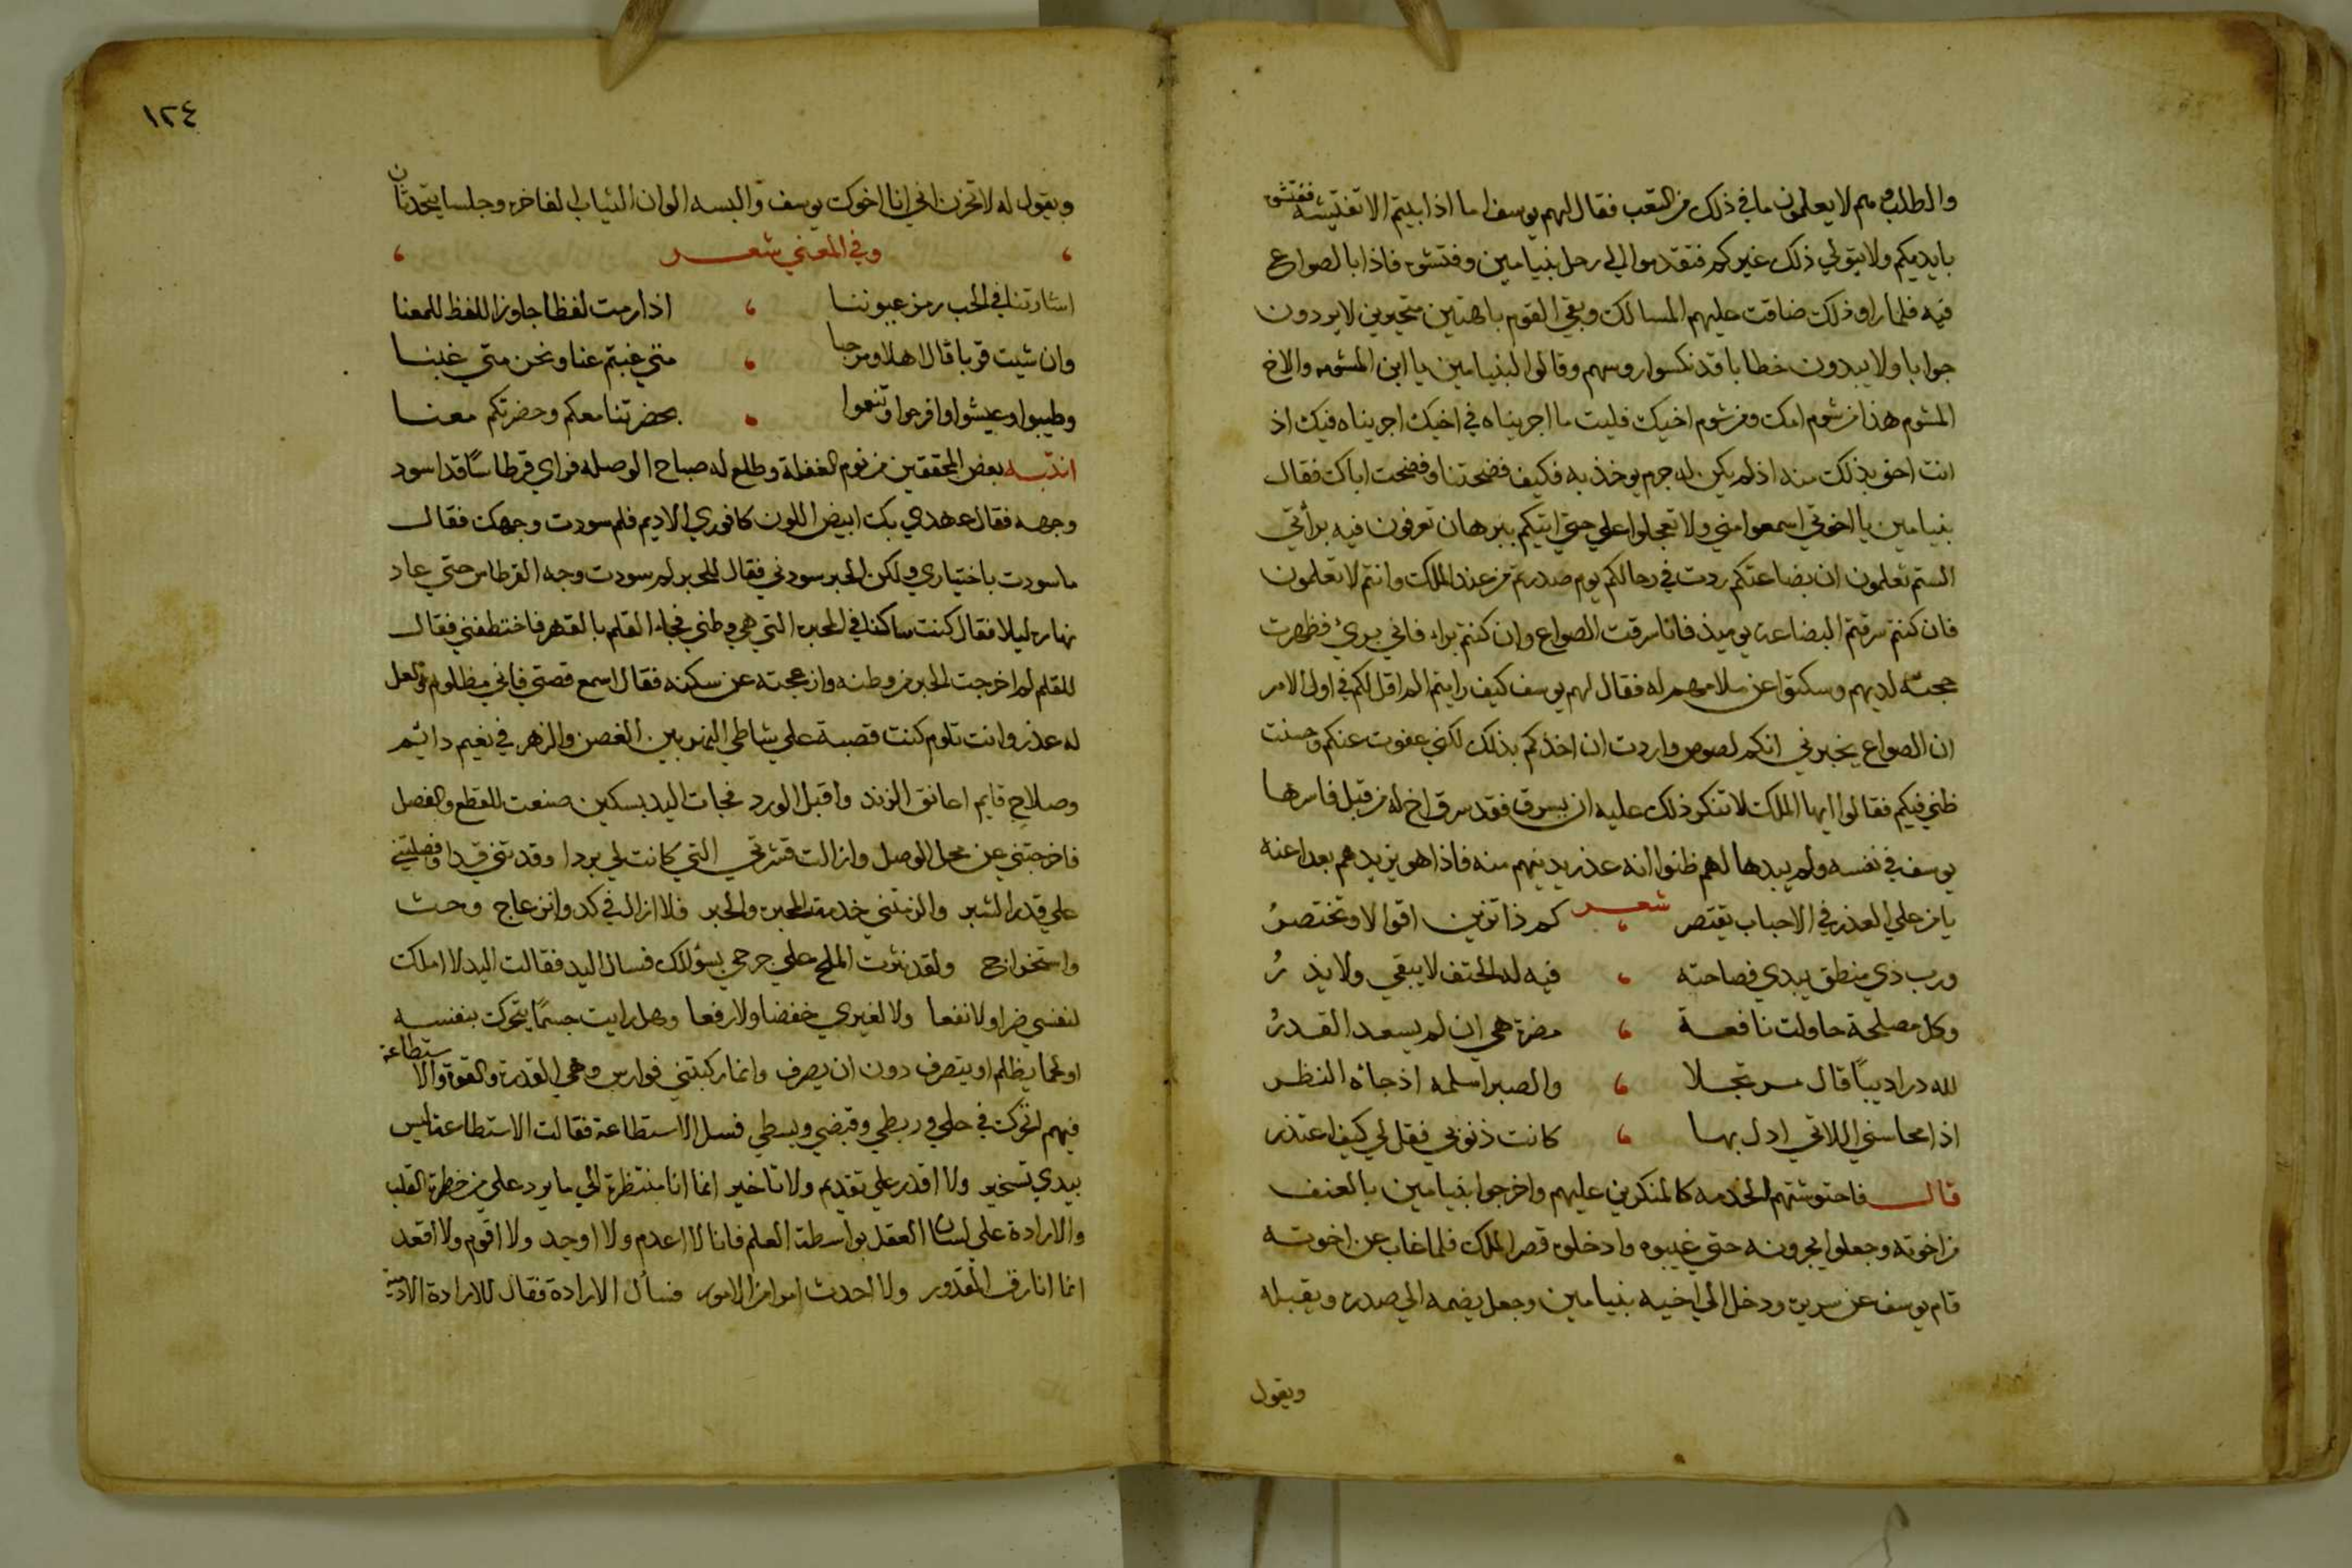 والطلب وهم لا يعلمون ما في ذلك من التعب فقال لهم يوسف اما اذا ابيتم الا تفتيشه ففتشوه
بايديكم ولا يتولي ذلك غيركم فتقدموا الي رحل بنيامين وفتشوه فاذا بالصواع
فيه فلما راو ذلك ضاقت عليهم المسالك وبقي القوم باهتين متحيرين لا يردون
جوابا ولا يبدون خطابا قد نكسوا روسهم وقالوا لبنيامين يا ابن المشومه والاخ
المشوم هذا من شوم امك ومن شوم اخيك فليت ما اجريناه في اخيك اجريناه فيك اذ
انت احق بذلك منه اذ لم يكن له جرم يوخذ به فكيف فضحتنا وفضحت اباك فقال
بنيامين يا اخوتي اسمعوا مني ولا تعجلوا علي حتي اتيكم ببرهان تعرفون فيه برأتي
الستم تعلمون ان بضاعتكم ردت في رحالكم يوم صدرتم من عند الملك وانتم لا تعلمون
فان كنتم سرقتم البضاعة يوميذ فانا سرقت الصواع وان كنتم براء فاني بريء فظهرت
حجته لديهم وسكتوا عن ملامهم له فقال لهم يوسف كيف رايتم الم اقل لكم في اول الامر
ان الصواع يخبرني انكم لصوص واردت ان اخذكم بذلك لكني عفوت عنكم وحسنت
ظني فيكم فقالوا ايها الملك لا تنكر ذلك عليه ان يسرق فقد سرق اخ له من قبل فاسرها
يوسف في نفسه ولم يبدها لهم ظنوا انه عذر يدينهم منه فاذا هو يزيدهم بعدا عنه
يا من علي العذر في الاحباب يقتصر شعر كم ذا تزين اقوالا وتختصرُ
ورب ذي منطق يبدي فصاحته ، فيه له الحتف لا يبقي ولا يذرُ
وكل مصلحة حاولت نافعة ، مضرة هي ان لم يسعد القدرُ
لله در اديبًا قال مرتجلا ، والصبر اسلمه اذ جائه النظر
اذا محاسني اللاتي ادل بها ، كانت ذنوبي فقل لي كيف اعتذر
قال فاحتوشتهم الخدمه كالمنكرين عليهم واخرجوا بنيامين بالعنف
من اخوته وجعلوا يجرونه حتي غيبوه وادخلوه قصر الملك فلما غاب عن اخوته
قام يوسف عن سريره ودخل الي اخيه بنيامين وجعل يضمه الي صدره ويقبله
ويقول
١٢٤
ويقول له لا تحزن اني انا اخوك يوسف والبسه الوان الثياب الفاخره وجلسا يتحدثان
، وفي المعني شعر ،
اشارتنا في الحب رمز عيوننا ، اذا رمت لفظا جاوز اللفظ للمعنا
وان شيت قربا قال اهلا ومرحبا ، متي غبتم عنا ونحن متي غبنا
وطيبوا وعيشوا وافرحوا وتنعموا ، بحضرتنا معكم وحضرتكم معنا
انتبه بعض المحققين من نوم الغفلة وطلع له صباح الوصله فراي قرطاسًا قد اسود
وجهه فقال عهدي بك ابيض اللون كافوري الاديم فلم سودت وجهك فقال
ما سودت باختياري ولكن الحبر سودني فقال للحبر لم سودت وجه القرطاس حتي عاد
نهاره ليلا فقال كنت ساكنا في المحبره التي هي وطني فجاء القلم بالقهر فاختطفني فقال
للقلم لم اخرجت الحبر من وطنه وازعجته عن سكنه فقال اسمع قصتي فاني مظلوم ولعل
له عذر وانت تلوم كنت قصبة علي شاطي النهر بين الغصن والزهر في نعيم دائم
وصلاحٍ قايم اعانق الرند واقبل الورد فجات اليد بسكين صنعت للقطع والفصل
فاخرجتني عن محل الوصل وازالت قشرتي التي كانت لي بردا وقدتني قدا وفصلتني
علي قدر الشبر والزمتني خدمة المحبره والحبر فلا ازال في كد وانزعاج وحث
واستخراج ولقد نثرت الملح علي جرحي بسؤلك فسال اليد فقالت اليد لا املك
لنفسي ضرا ولا نفعا ولا لغيري خفضا ولا رفعا وهل رايت جسمًا يتحرك بنفسه
او لحما يظلم او يتصرف دون ان يصرف وانما ركبتني فوارس وهي القدرة والقوة والاستطاعة
فيهم اتحرك في حلي وربطي وقبضي وبسطي فسل الاستطاعة فقالت الاستطاعة ليس
بيدي تسخير ولا اقدر علي تقديم ولا تاخير انما انا منتظرة الي ما يرد علي من خطرة القلب
والارادة علي لسان العقل بواسطة العلم فانا لا اعدم ولا اوجد ولا اقوم ولا اقعد
انما انا رق المقدور ولا احدث امرا من الامور فسأل الارادة فقال للارادة